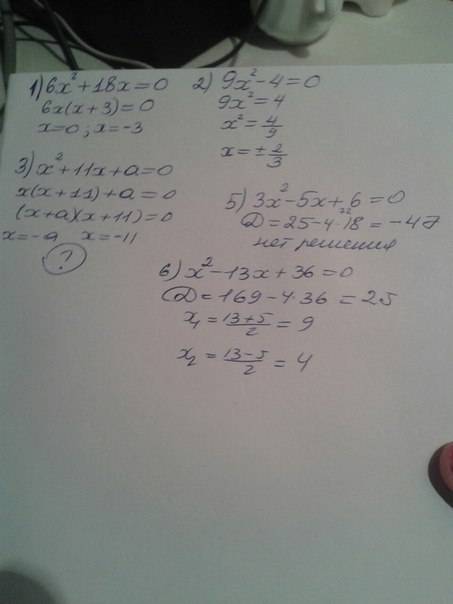 1) 6x²+18x=0
6x(x+3)=0
x=0; x=-3
2) 9x²-4=0
9x²=4
x²=4/9
x=±2/3
3) x²+11x+a=0
x(x+11)+a=0
(x+a)(x+11)=0
x=-a x=-11
?
5) 3x²-5x+6=0
D=25-4·18=-47
нет решения
6) x²-13x+36=0
D=169-4·36=25
x₁=13+5/2=9
x₂=13-5/2=4